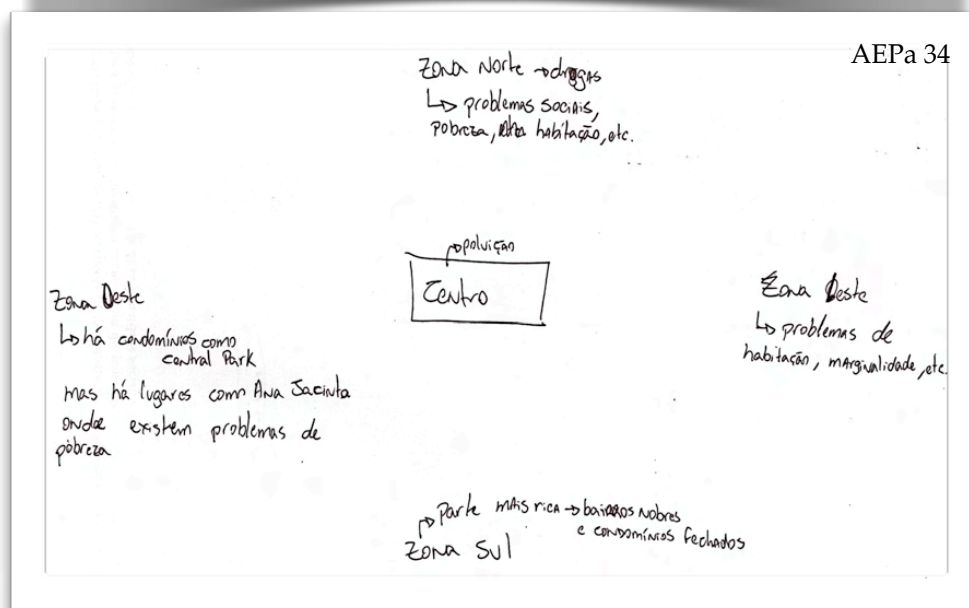 AEPa 34
Zona Norte → drogas
↳ problemas sociais,
pobreza, habitação, etc.
↱ poluição
Centro
Zona Oeste
↳ há condomínios como
Central Park
mas há lugares como Ana Jacinta
onde existem problemas de
pobreza
Zona Leste
↳ problemas de
habitação, marginalidade, etc.
↱ parte mais rica → bairros nobres
e condomínios fechados
Zona Sul